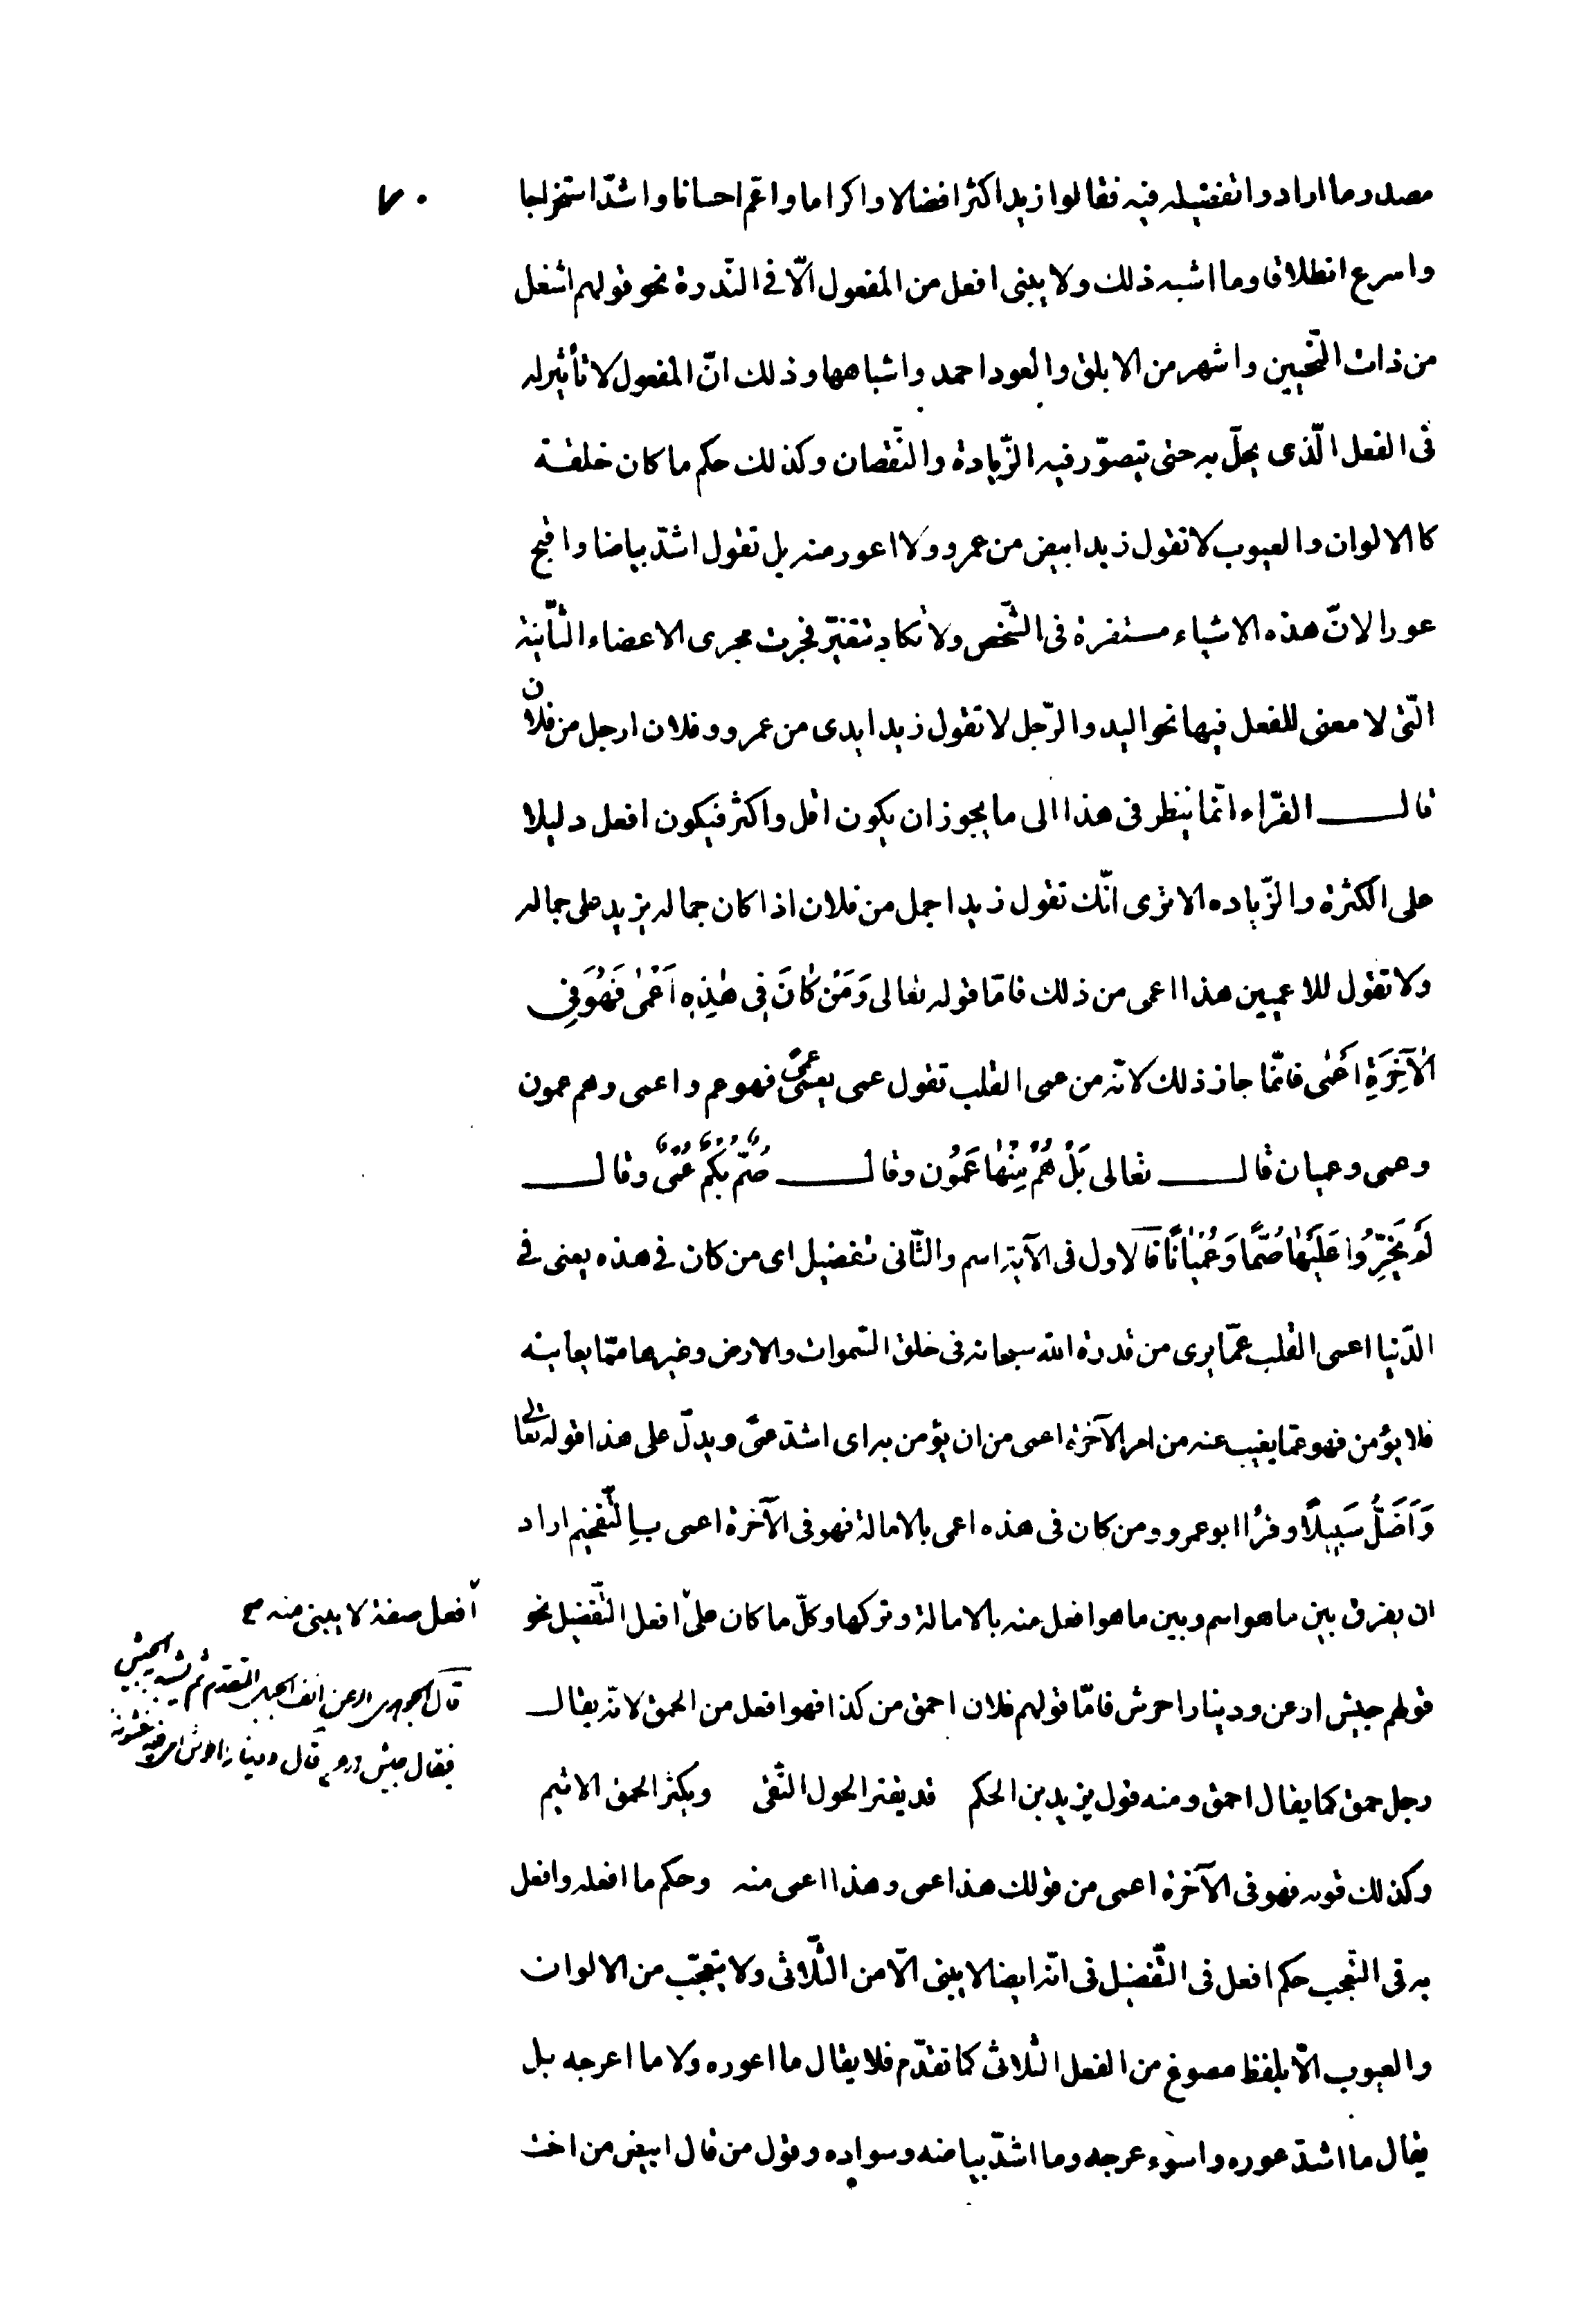 ٧٠
مصدر ما ارادوا تفضيله فيه فقالوا زيد اكثر افضالا واكراما واعّم احسانا واشدّ استخراجا
واسرع انطلاقا وما اشبه ذلك ولا يبنى افعل من المفعول الّا فى النّدرة نحو قولهم اشغل
من ذات النّحيين واشهر من الابلق والعود احمد واشباهها وذلك انّ المفعول لا تأثير له
فى الفعل الّذى يحلّ به حتى يتصوّر فيه الزّيادة والنّقصان وكذلك حكم ما كان خلقة
كالالوان والعيوب لا تقول زيد ابيض من عمرو ولا اعور منه بل تقول اشدّ بياضا واقبح
عورا لانّ هذه الاشياء مستقرة فى الشّخص ولا تكاد تتغيّر فجرت مجرى الاعضاء الثّابتة
الّتى لا معنى للفعل فيها نحو اليد والرّجل لا تقول زيد ايدى من عمرو وفلان ارجل من فلان
قال الفرّاء انّما ينظر فى هذا الى ما يجوز ان يكون اقل واكثر فيكون افعل دليلا
على الكثرة والزّياده الا ترى انّك تقول زيد اجمل من فلان اذا كان جماله يزيد على جماله
ولا تقول للاعميين هذا اعمى من ذلك فامّا قوله تعالى وَمَنْ كَانَ فِى هٰذِهِ اَعْمٰى فَهُوَ فِى
الْآخِرَةِ اَعْمٰى فانّما جاز ذلك لانّه من عمى القلب تقول عمى يعمى عمىً فهو عم واعمى وهم عمون
وعمى وعميان قال تعالى بَلْ هُمْ مِنْهَا عَمُون وقال صُمٌّ بُكْمٌ عُمْىٌ وقال
لَمْ يَخِرُّوا عَلَيْهَا صُمًّا وَعُمْيَانًا فالاول فى الآية اسم والثّانى تفضيل اى من كان فى هذه يعنى فى
الدّنيا اعمى القلب عمّا يرى من قدرة الله سبحانه فى خلق السّموات والارض وغيرها ممّا يعاينه
فلا يؤمن فهو عمّا يغيب عنه من امر الآخرة اعمى من ان يؤمن به اى اشدّ عمىً ويدلّ على هذا قوله تعالى
وَاَضَلُّ سَبِيلًا وقرأ ابو عمرو ومن كان فى هذه اعمى بالامالة فهو فى الآخرة اعمى بالتّفخيم اراد
ان يفرق بين ما هو اسم وبين ما هو افعل منه بالامالة وتركها وكلّ ما كان على افعل التّفضيل نحو
قولهم جيش ارعن ودينار احرش فامّا قولهم فلان احمق من كذا فهو افعل من الحمق لانّه يقال
رجل حمق كما يقال احمق ومنه قول يزيد بن الحكم قد يقتر الحول التّقى ويكثر الحمق الاثيم
وكذلك قوله فهو فى الآخرة اعمى من قولك هذا عمى وهذا اعمى منه وحكم ما افعله وافعل
به فى التّعجب حكم افعل فى التّفضيل فى انّه ايضا لا يبنى الّا من الثّلاثى ولا يتعجّب من الالوان
والعيوب الّا بلفظ مصوغ من الفعل الثلاثى كما تقدّم فلا يقال ما اعوره ولا ما اعرجه بل
يقال ما اشدّ عوره واسوء عرجه وما اشدّ بياضه وسواده وقول من قال ابيض من اخت
افعل صفة لا يبنى منه صح
قال الجوهرى الرعن انف الجبل المتقدم ثم يشبه به الجيش
فيقال جيش ارعن قال ودينار احرش اى فيه خشونة